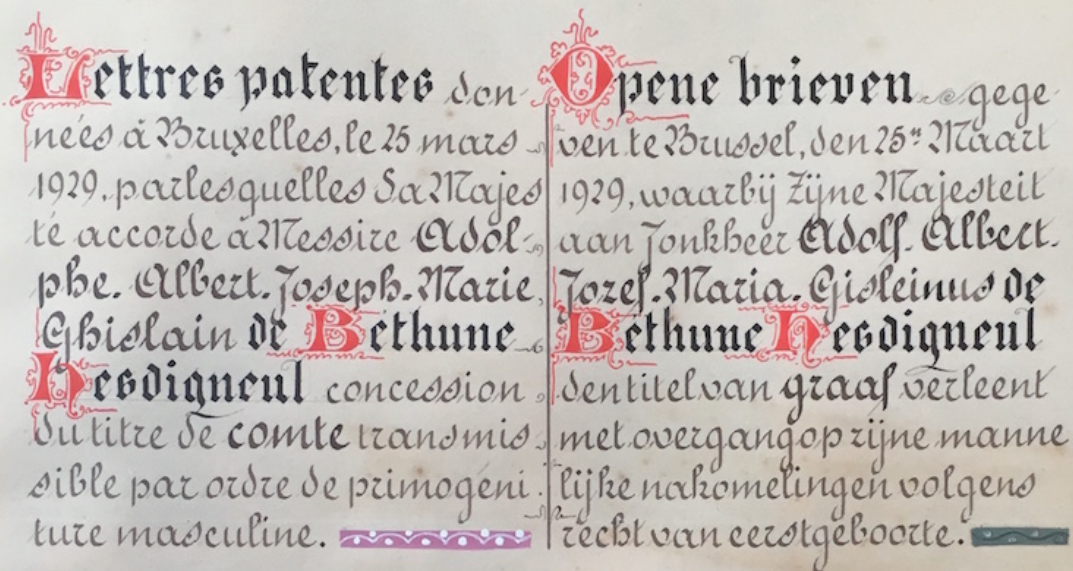 Lettres patentes don-
nées à Bruxelles, le 25 mars
1929, par lesquelles Sa Majes
té accorde à Messire Adol-
phe. Albert. Joseph. Marie,
Ghislain de Béthune
Hesdigneul concession
du titre de comte transmis
sible par ordre de primogéni.
ture masculine.
Opene brieven gege-
ven te Brussel, den 25n Maart
1929, waarbij Zijne Majesteit
aan Jonkheer Adolf. Albert.
Jozef. Maria. Gisleinus de
Béthune Hesdigneul
den titel van graaf verleent
met overgang op zijne manne
lijke nakomelingen volgens
recht van eerstgeboorte.